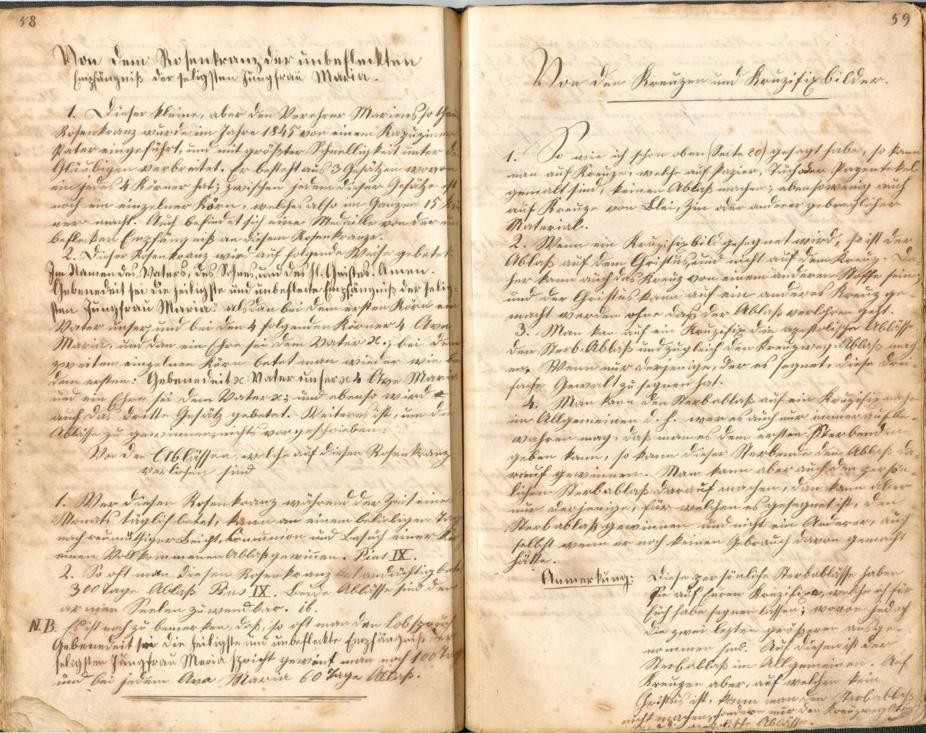 58
Von dem Rosenkranz der unbefleckten
Empfängniß der seligsten Jungfrau Maria.
1. Dieser kleine, aber den Verehrer Mariens so
Rosenkranz wurde im Jahre 1845 von einem Kapuziner
Pater eingeführt, und mit größter Schnelligkeit unter
Gläubigen verbreitet. Er besteht aus 3 Gesätzen wovon
ein jedes 4 Körner hat; zwischen jedem dieser Gesätze ist
noch ein einzelner Körn, welches also im Ganzen 15
ner macht. Auch befindet sich eine Medaille von der
befleckten Empfängniß an disem Rosenkranze.
2. Dieser Rosenkranz wird auf folgende Weise gebetet
Im Namen des Vaters, des Sohnes, und des hl. Geistes. Amen.
Gebenedeit sei die heiligste und unbefleckte Empfängniß der selig-
sten Jungfrau Maria! alsdan bei dem ersten Körn ein
Vater unser und bei den 4 folgenden Körner 4 Ave
Maria, und dan ein Ehre sei dem Vater ꝛc; bei dem
zweiten einzelnen Körn betet man wieder wie bei
dem ersten: Gebenedeit ꝛc Vater unser ꝛc 4 Ave Maria
und ein Ehre sei dem Vater ꝛc; und ebenso wird
auch das dritte Gesätz gebetet. Weiteres ist, um die
Abläße zu gewinnen, nichts vorgeschrieben.
Von den Ablässen, welche auf diesen Rosenkranz
verliehen sind
1. Wer diesen Rosenkranz während der Zeit eines
Monats täglich betet, kann an einem beliebigen Tag
nach reumüthiger Beicht, Comunion und Besuch einer
einen Vollkommenen Ablaß gewinnen. Pius IX.
2. So oft man diesen Rosenkranz andächtig betet
300 Tage Ablaß Pius IX. Beide Abläße sind den
armen Seelen zuwendbar. ib.
N.B. Es ist noch zu bemerken, daß, so oft man den Lobspruch
Gebenedeit sei die heiligste und unbefleckte Empfängniß der
seligsten Jungfrau Maria spricht gewint man noch 100 Tag
und bei jedem Ave Maria 60 Tage Ablaß.
59
Von den Kreuzen und Kruzifixbilder.
1. So wie ich schon oben (Seite 20) gesagt habe, so kann
man auf Kreuze, welche auf Papier, Tuch oder
gemalt sind, keinen Ablaß machen; ebensowenig auch
auf Kreuze von Blei, Zin oder anderer gebrechlicher
Material.
2. Wenn ein Kruzifixbild gesegnet wird, so ist der
Ablaß auf dem Christus und nicht auf dem Kreuz. Da-
her kann auch das Kreuz von einem anderen Stoffe sein;
und der Christus kann auf ein anderes Kreuz ge-
macht werden ohne daß der Ablaß verlohren geht.
3. Man kan auf ein Kruzifix die apostolischen Ablässe
den Sterb-Ablaß und zugleich den Kreuzweg-Ablaß mach
en. Wenn nur derjenige, der es segnet, diese drei-
fache Gewalt zu segnen hat.
4. Man kann den Sterbablaß auf ein Kruzifix
im Allgemeinen d. h. wer es auch nur immer
wahren mag, daß man es dem ersten Sterbenden
geben kann, so kann dieser Sterbende den Ablaß da-
rauf gewinnen. Man kann aber auch den persön-
lichen Sterbablaß darauf machen, dan kann aber
nur derjenige, für welchen es gesegnet ist, den
Sterbablaß gewinnen und nicht ein Anderer, auch
selbst wenn er noch keinen Gebrauch davon gemacht
hätte.
Anmerkung: Diese persönliche Sterbablässe haben
Sie auf Euren Kruzifixe, welche ich für
Euch habe segnen lassen; wovon jedoch
die zwei lezten größeren ausge-
nommen sind. Auf diesen ist der
Sterbablaß im Allgemeinen. Auf
Kreuzen aber, auf welchen kein
Christus ist, kann man den Sterbablaß
nicht machen, sondern nur den Kreuzweg